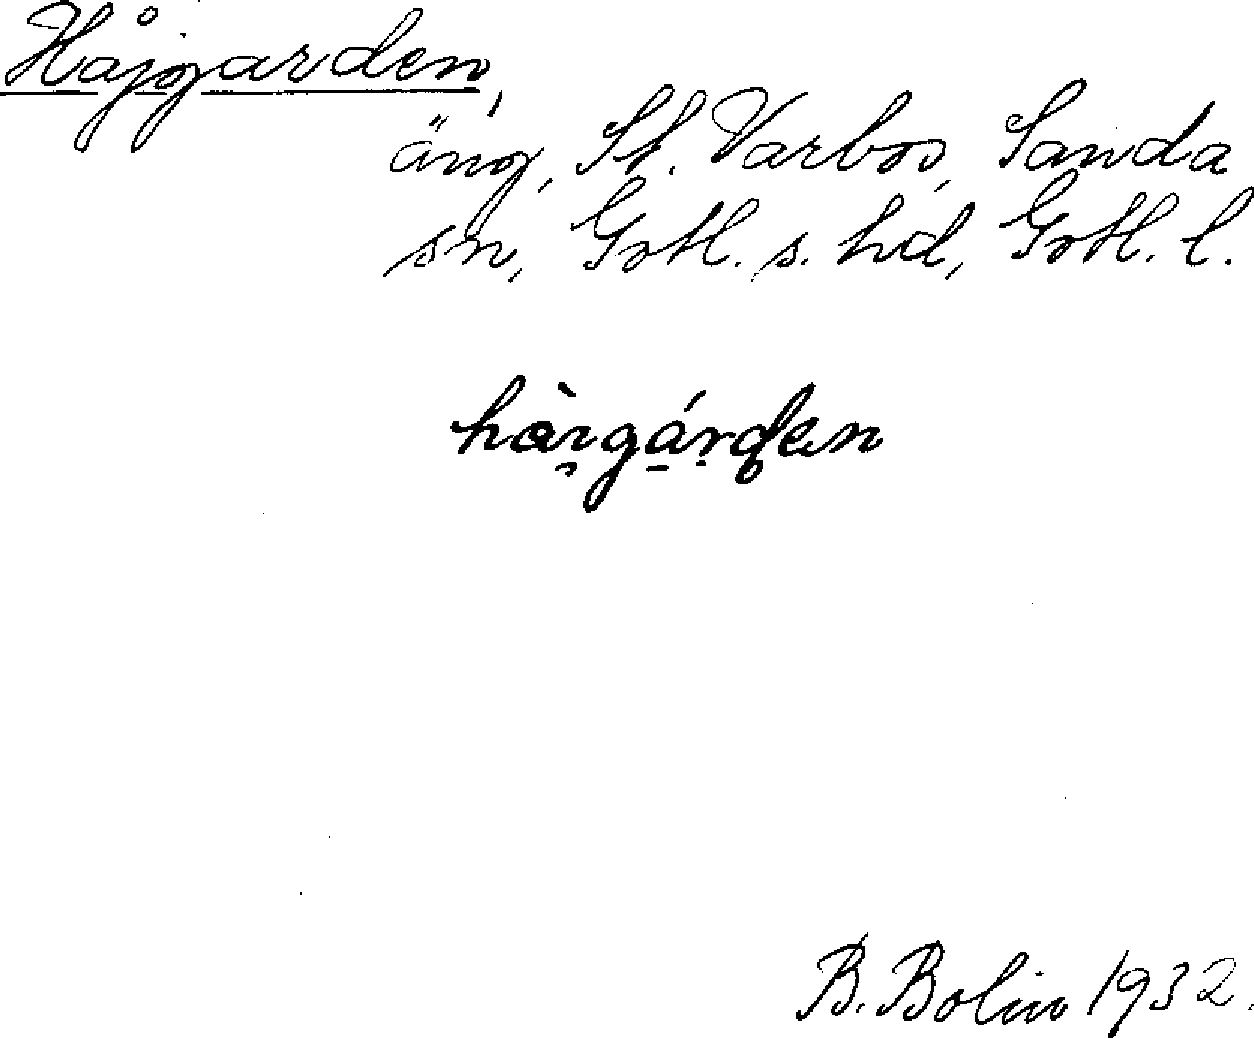 Håjgarden,
äng, St. Varbos, Sanda
sn, Gotl. s. hd, Gotl. l.
B. Bolin 1932.